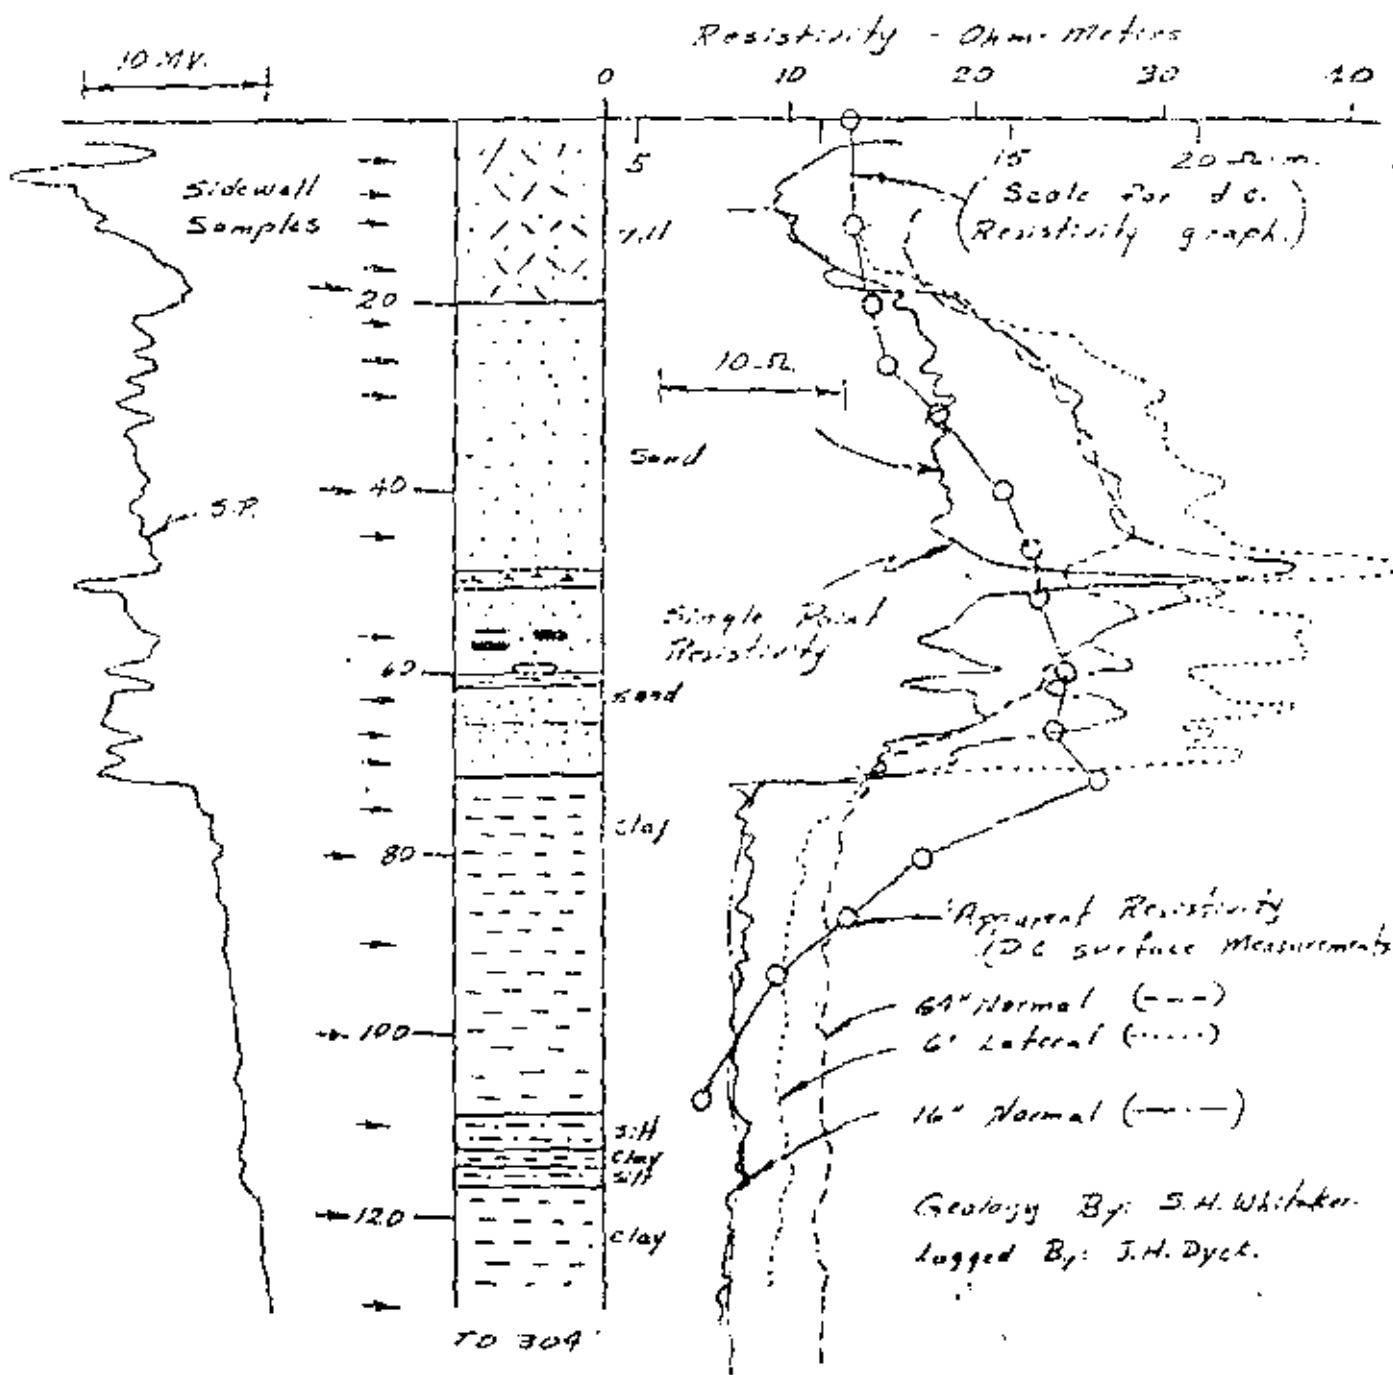 Resistivity - Ohm-Meters
10 MV.
0 10 20 30 40
5 15 20 Ω.m.
(Scale for d.c.
Resistivity graph.)
Sidewall
Samples
Till
20
10 Ω.
Sand
40
S.P.
Single Point
Resistivity
60
Sand
Clay
80
Apparent Resistivity
(DC surface Measurements
64" Normal (----)
6' Lateral (......)
16" Normal (—·—)
100
Silt
Clay
Silt
120
Clay
Geology By: S.H. Whitaker
Logged By: J.H. Dyck.
TO 304'